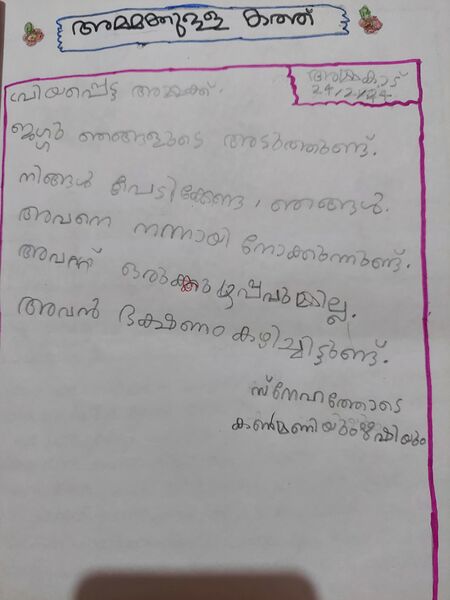 അമ്മക്കുള്ള കത്ത്
അമ്മകാട്
24/2/24
പ്രിയപ്പെട്ട അമ്മക്ക്.
ജഗ്ഗു ഞങ്ങളുടെ അടുത്തുണ്ട്.
നിങ്ങൾ പേടിക്കേണ്ട, ഞങ്ങൾ.
അവനെ നന്നായി നോക്കുന്നുണ്ട്.
അവന് ഒരുക്കുഴപ്പവുമില്ല.
അവൻ ഭക്ഷണം കഴിച്ചിട്ടുണ്ട്.
സ്നേഹത്തോടെ
കൺമണിയും